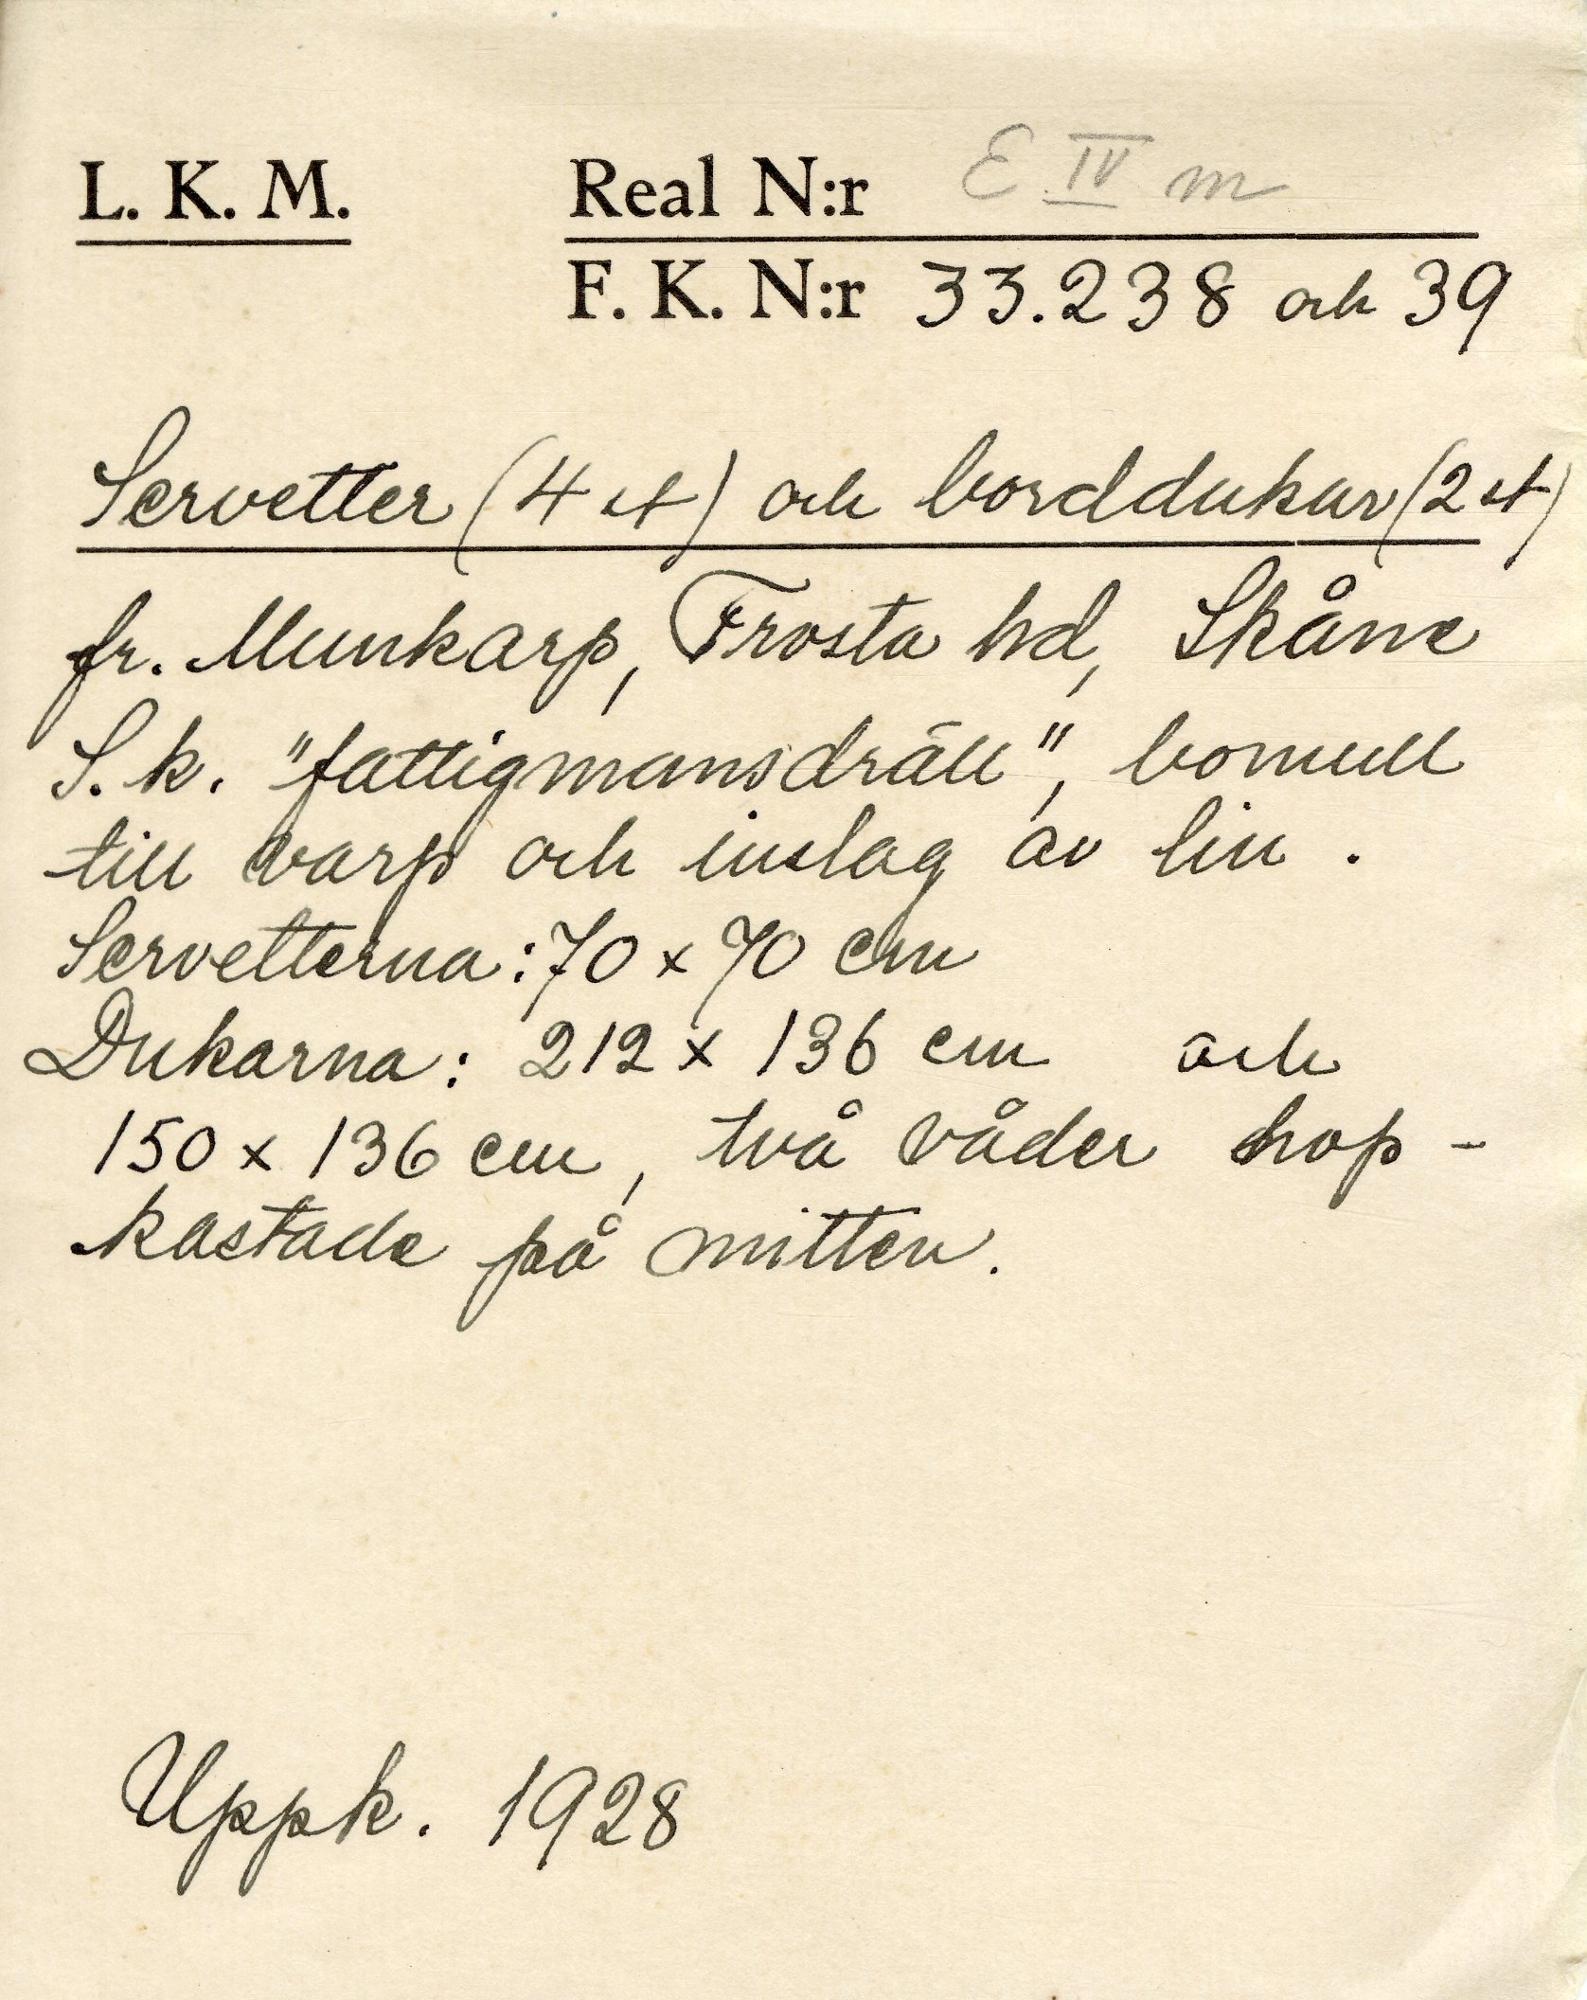 L. K. M.
Real N:r E IV m
F. K. N:r 33.238 och 39
Servetter (4 st) och borddukar (2 st)
fr. Munkarp, Frosta hd, Skåne
S. k. "fattigmansdräll", bomull
till varp och inslag av lin .
Servetterna: 70 x 70 cm
Dukarna: 212 x 136 cm och
150 x 136 cm, två våder hop -
kastade på mitten.
Uppk. 1928